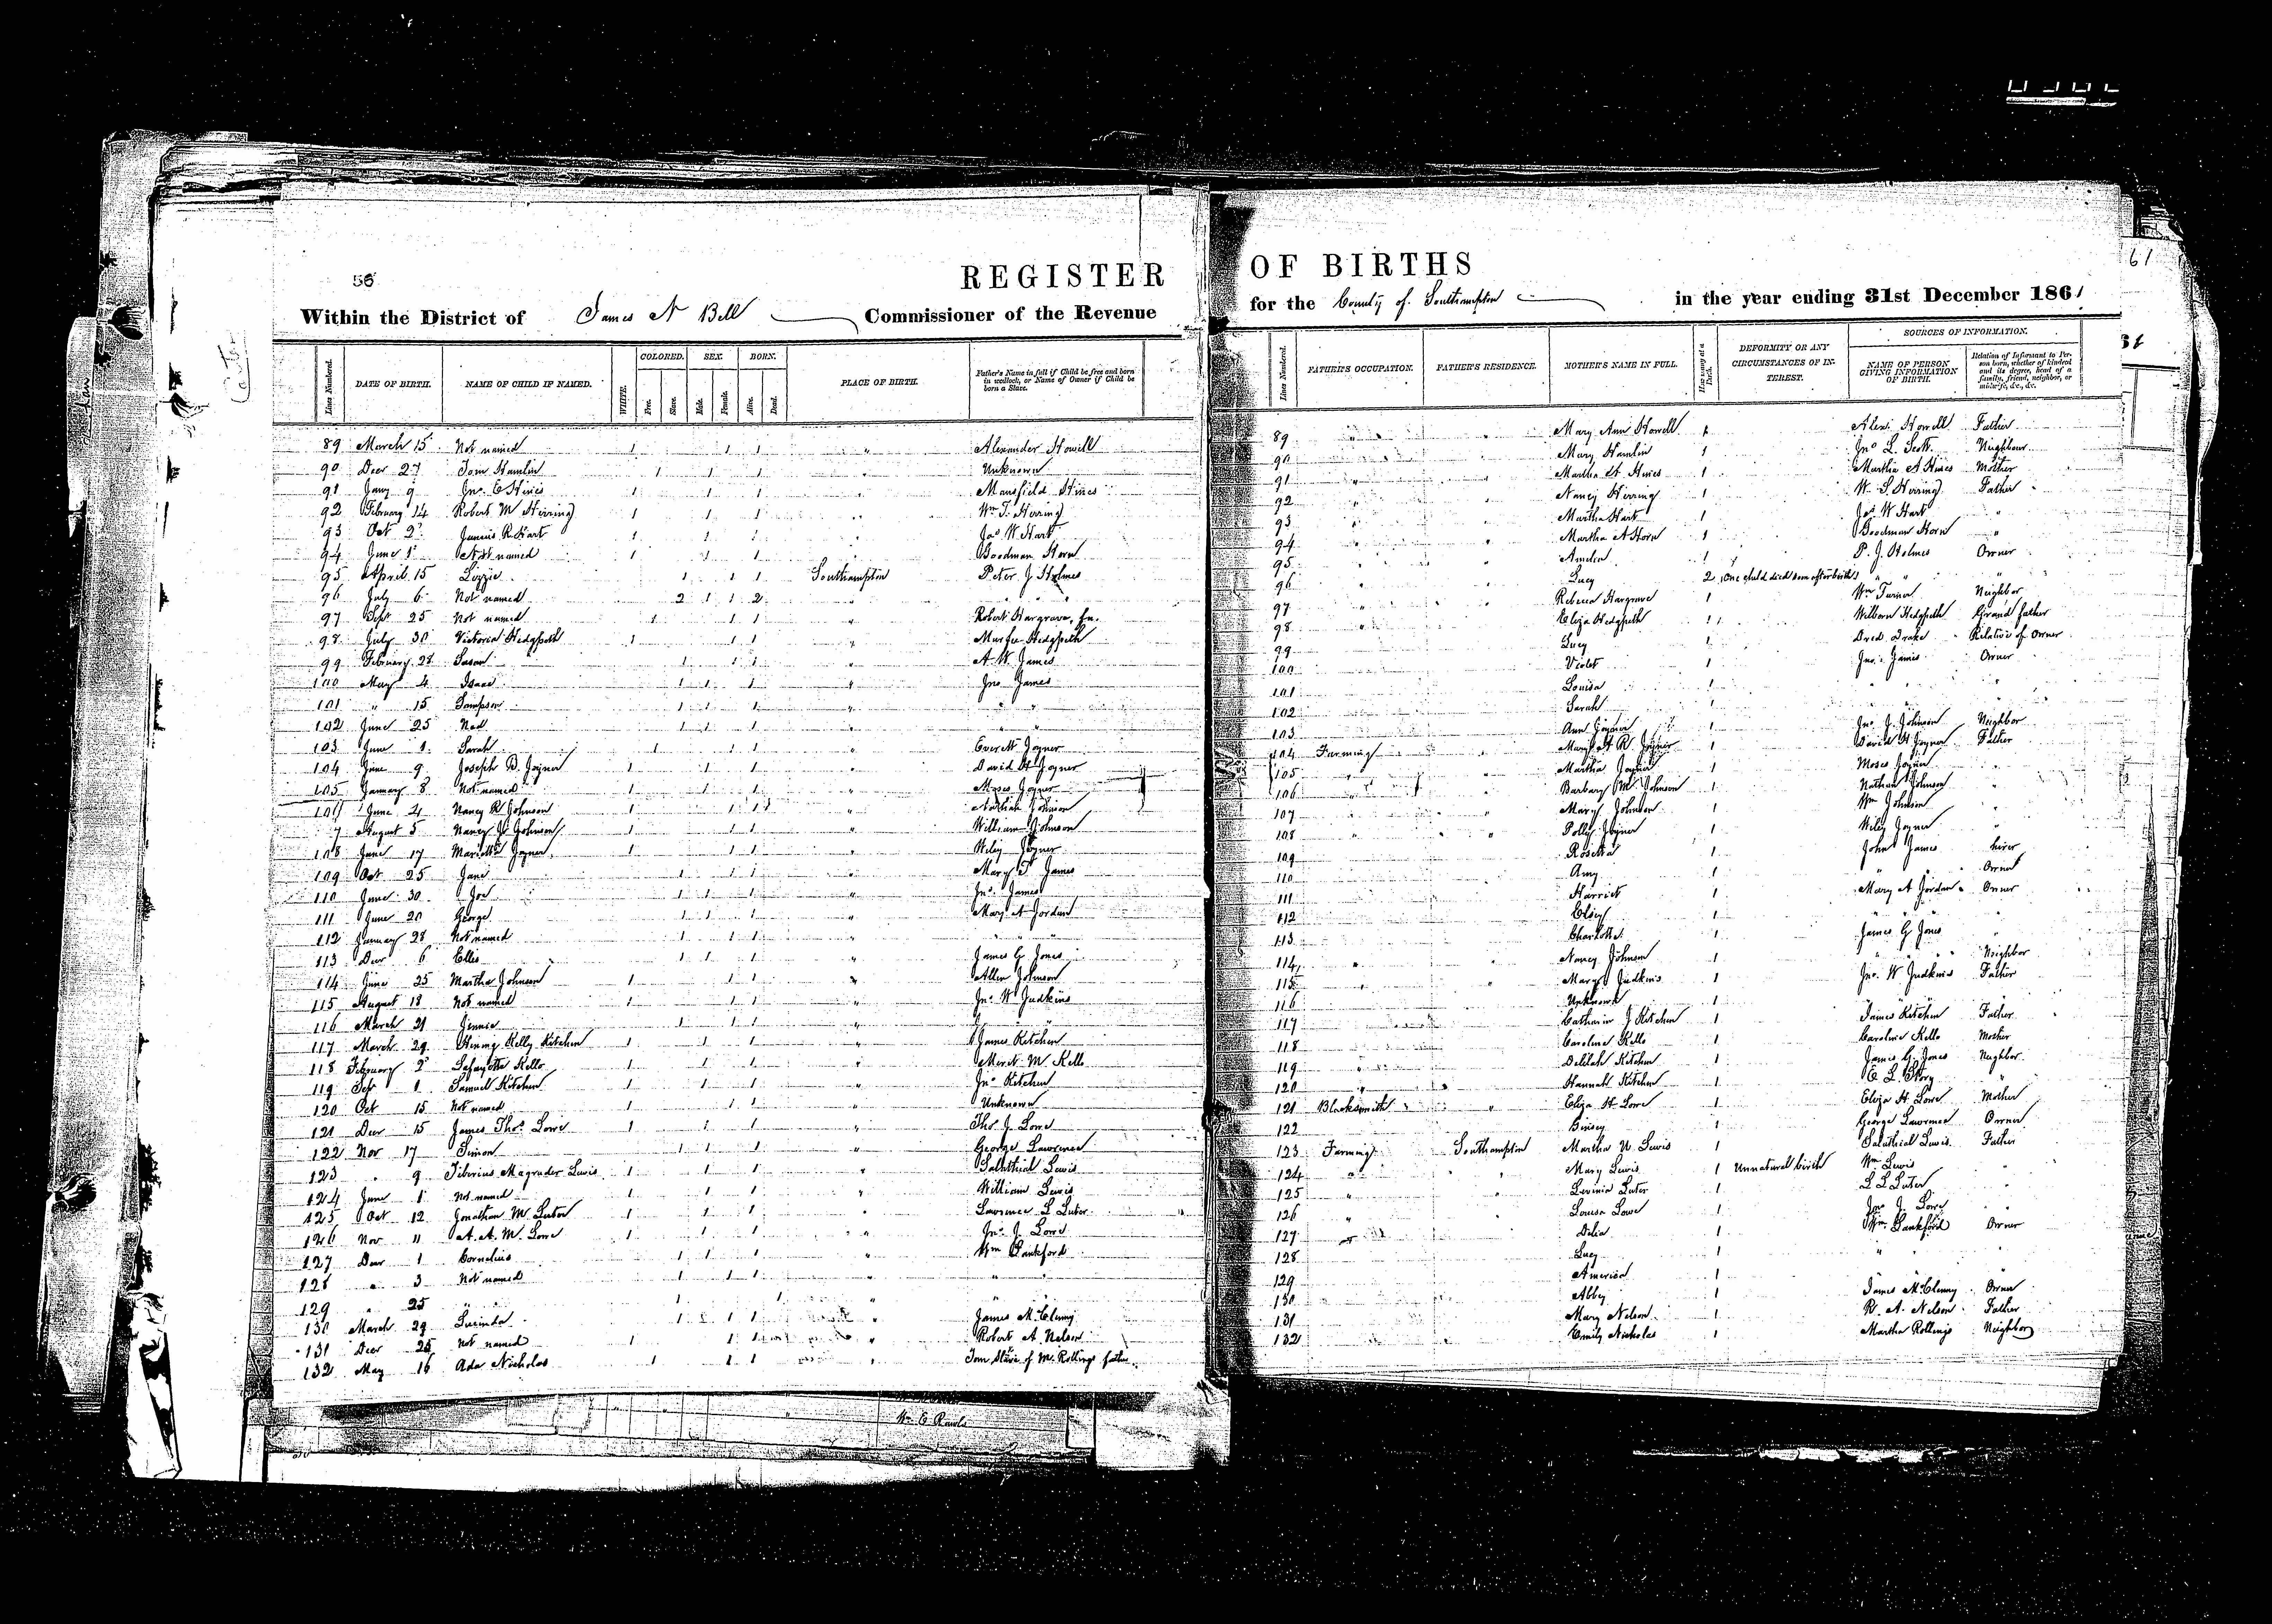 56
REGISTER
Within the District of James N Bell Commissioner of the Revenue
Lines Numbered. DATE OF BIRTH. NAME OF CHILD IF NAMED. WHITE. COLORED. Free. Slave. SEX. Male. Female. BORN. Alive. Dead. PLACE OF BIRTH. Father's Name in full if Child be free and born in wedlock, or Name of Owner if Child be born a Slave.
89 March 15 Not named 1 1 1 " Alexander Howell
90 Decr 27 Tom Hamlin 1 1 1 " Unknown
91 Jany 9 Jno. E Hines 1 1 1 " Mansfield Hines
92 February 14 Robert M Herring 1 1 1 " Wm T. Herring
93 Oct 2 Junius R Hart 1 1 1 " Jas W Hart
94 June 1 Not named 1 1 1 " Goodman Horn
95 April 15 Lizzie 1 1 1 Southampton Peter J Holmes
96 July 6 Not named 2 1 1 2 " " "
97 Sept 25 Not named 1 1 1 " Robert Hargrave
98 July 30 Victoria Hedgpeth 1 1 1 " Hedgpeth
99 February 28 Susan 1 1 1 " A W James
100 May 4 Isaac 1 1 1 " Jno James
101 " 15 Sampson 1 1 1 " " "
102 June 25 Ned 1 1 1 " " "
103 June 1 Sarah 1 1 1 " Everett Joyner
104 June 9 Joseph B. Joyner 1 1 1 " David H Joyner
105 January 8 Not named 1 1 1 " Moses Joyner
June 4 Nancy R Johnson 1 1 1 " Nathan Johnson
7 August 5 Nancy J. Johnson 1 1 1 " William Johnson
108 June 17 Joyner 1 1 1 " Wiley Joyner
109 Oct 25 Jane 1 1 1 " Mary F James
110 June 30 Joe 1 1 1 " Jno. James
111 June 20 George 1 1 1 " Mary A Jordan
112 January 28 Not named 1 1 1 " " "
113 Decr 6 Ellis 1 1 1 " James G Jones
114 June 25 Martha Johnson 1 1 1 " Allen Johnson
115 August 18 Not named 1 1 1 " Jno. W Judkins
116 March 21 Jennie 1 1 1 " " "
117 March 29 Kelly Kitchen 1 1 1 " James Kitchen
118 February 2 Lafayette Kello 1 1 1 " M. Kello
119 Sep 1 Samuel Kitchen 1 1 1 " Jno Kitchen
120 Oct 15 Not named 1 1 1 " Unknown
121 Decr 15 James Thos. Lowe 1 1 1 " Tho J. Lowe
122 Nov 17 Simon 1 1 1 " George Lawrence
123 " 9 Tiberius Magruder Lewis 1 1 1 " Salathial Lewis
124 June 1 Not named 1 1 1 " William Lewis
125 Oct 12 Jonathan M. Luter 1 1 1 " Lawrence L Luter
126 Nov 11 A. A. M. Lowe 1 1 1 " Jno. J. Lowe
127 Decr 1 Cornelius 1 1 1 " Wm Lankford
128 " 3 Not named 1 1 1 " " "
129 " 25 " " 1 1 " "
130 March 29 Lucinda 1 1 1 " James McClenny
131 Decr 25 Not named 1 1 1 " Robert A. Nelson
132 May 16 Ada Nicholas 1 1 1 " Tom Slave of M. Rollings father
Wm E Rawls
OF BIRTHS
for the County of Southampton in the year ending 31st December 1861
Lines Numbered. FATHER'S OCCUPATION. FATHER'S RESIDENCE. MOTHER'S NAME IN FULL. How many at a Birth. DEFORMITY OR ANY CIRCUMSTANCES OF INTEREST. SOURCES OF INFORMATION. NAME OF PERSON GIVING INFORMATION OF BIRTH. Relation of Informant to Person born, whether of kindred and its degree, head of a family, friend, neighbor, or midwife, &c., &c.
89 " " Mary Ann Howell 1 Alex. Howell Father
90 " " Mary Hamlin 1 Jno L. Scott Neighbour
91 " " Martha A Hines 1 Martha A Hines Mother
92 " " Nancy Herring 1 W. T. Herring Father
93 " " Martha Hart 1 Jas W Hart "
94 " " Martha A Horn 1 Goodman Horn "
95 Amelia 1 P. J Holmes Owner
96 Lucy 2 One child died soon after birth " " "
97 " " Rebecca Hargrave 1 Wm Turner Neighbor
98 " " Eliza Hedgpeth 1 Wilborn Hedgpeth Grand father
99 Lucy 1 Dred Drake Relative of Owner
100 Violet 1 Jno. James Owner
101 Louisa 1 " "
102 Sarah 1 " "
103 Ann Joyner 1 Jno. J. Johnson Neighbor
104 Farming " Mary A R Joyner 1 David H Joyner Father
105 " " Martha Joyner 1 Moses Joyner "
106 " " Barbary M. Johnson 1 Nathan Johnson "
107 " " Mary Johnson 1 Wm Johnson "
108 " " Polly Joyner 1 Wiley Joyner "
109 Rosetta 1 John James hirer
110 Amy 1 " " Owner
111 Harriet 1 Mary A Jordan Owner
112 Elsey 1 " " "
113 Charlotte 1 James G Jones "
114 " Nancy Johnson 1 " " Neighbor
115 " Mary Judkins 1 Jno. W Judkins Father
116 Unknown 1 " " "
117 " Catharine J Kitchen 1 James Kitchen Father
118 " Caroline Kello 1 Caroline Kello Mother
119 " Delilah Kitchen 1 James G. Jones Neighbor
120 " Hannah Kitchen 1 E L. Story "
121 Blacksmith " Eliza H Lowe 1 Eliza H Lowe Mother
122 Binsey 1 George Lawrence Owner
123 Farming Southampton Martha W Lewis 1 Salathial Lewis Father
124 " " Mary Lewis 1 Unnatural birth Wm Lewis "
125 " " Lavinia Luter 1 L L Luter "
126 " " Louisa Lowe 1 Jno J. Lowe "
127 Delia 1 Wm. Lankford Owner
128 Lucy 1 " "
129 America 1 " "
130 Abby 1 James McClenny Owner
131 Mary Nelson 1 R. A. Nelson Father
132 Emily Nicholas 1 Martha Rollings Neighbor
61